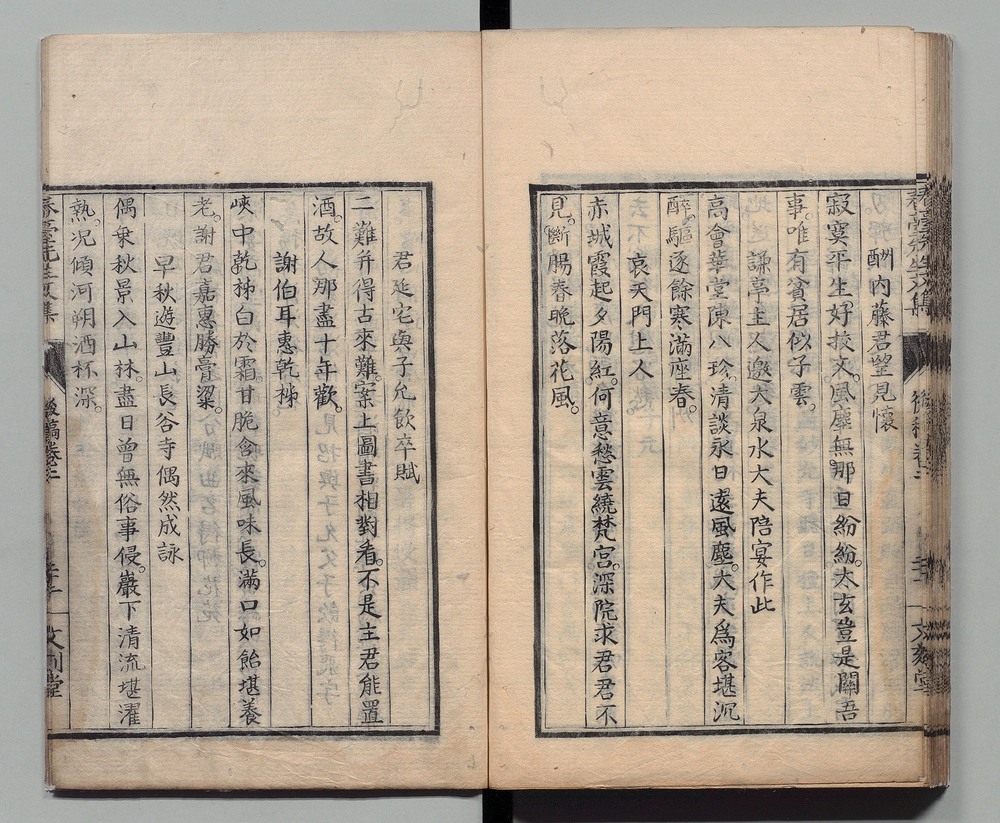 酬內藤君望見懷
寂寞平生好投文。風靡無那日紛紛。太玄豈是關吾
事。唯有貧居似子雲。
謙亭主人邀大泉水大夫陪宴作此
高會華堂陳八珍。清談永日遠風塵。大夫爲客堪沉
醉。驅逐餘寒滿座春。
哀天門上人
赤城霞起夕陽紅。何意愁雲繞梵宮。深院求君君不
見。斷腸春晚落花風。
君延宅與子允飲卒賦
二難并得古來難。案上圖書相對看。不是主君能置
酒。故人那盡十年歡。
謝伯耳惠乾柹
峽中乾柹白於霜。甘脆含來風味長。滿口如飴堪養
老。謝君嘉惠勝膏粱。
早秋遊豐山長谷寺偶然成詠
偶乘秋景入山林。盡日曾無俗事侵。巖下清流堪濯
熱。況傾河朔酒杯深。
春臺先生文集
後稿卷二